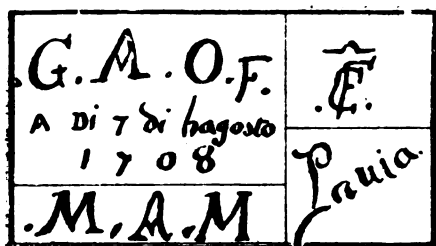 .G.A.O.F.
A Di 7 di hagosto
1708
.M.A.M
.Œ.
Pauia.